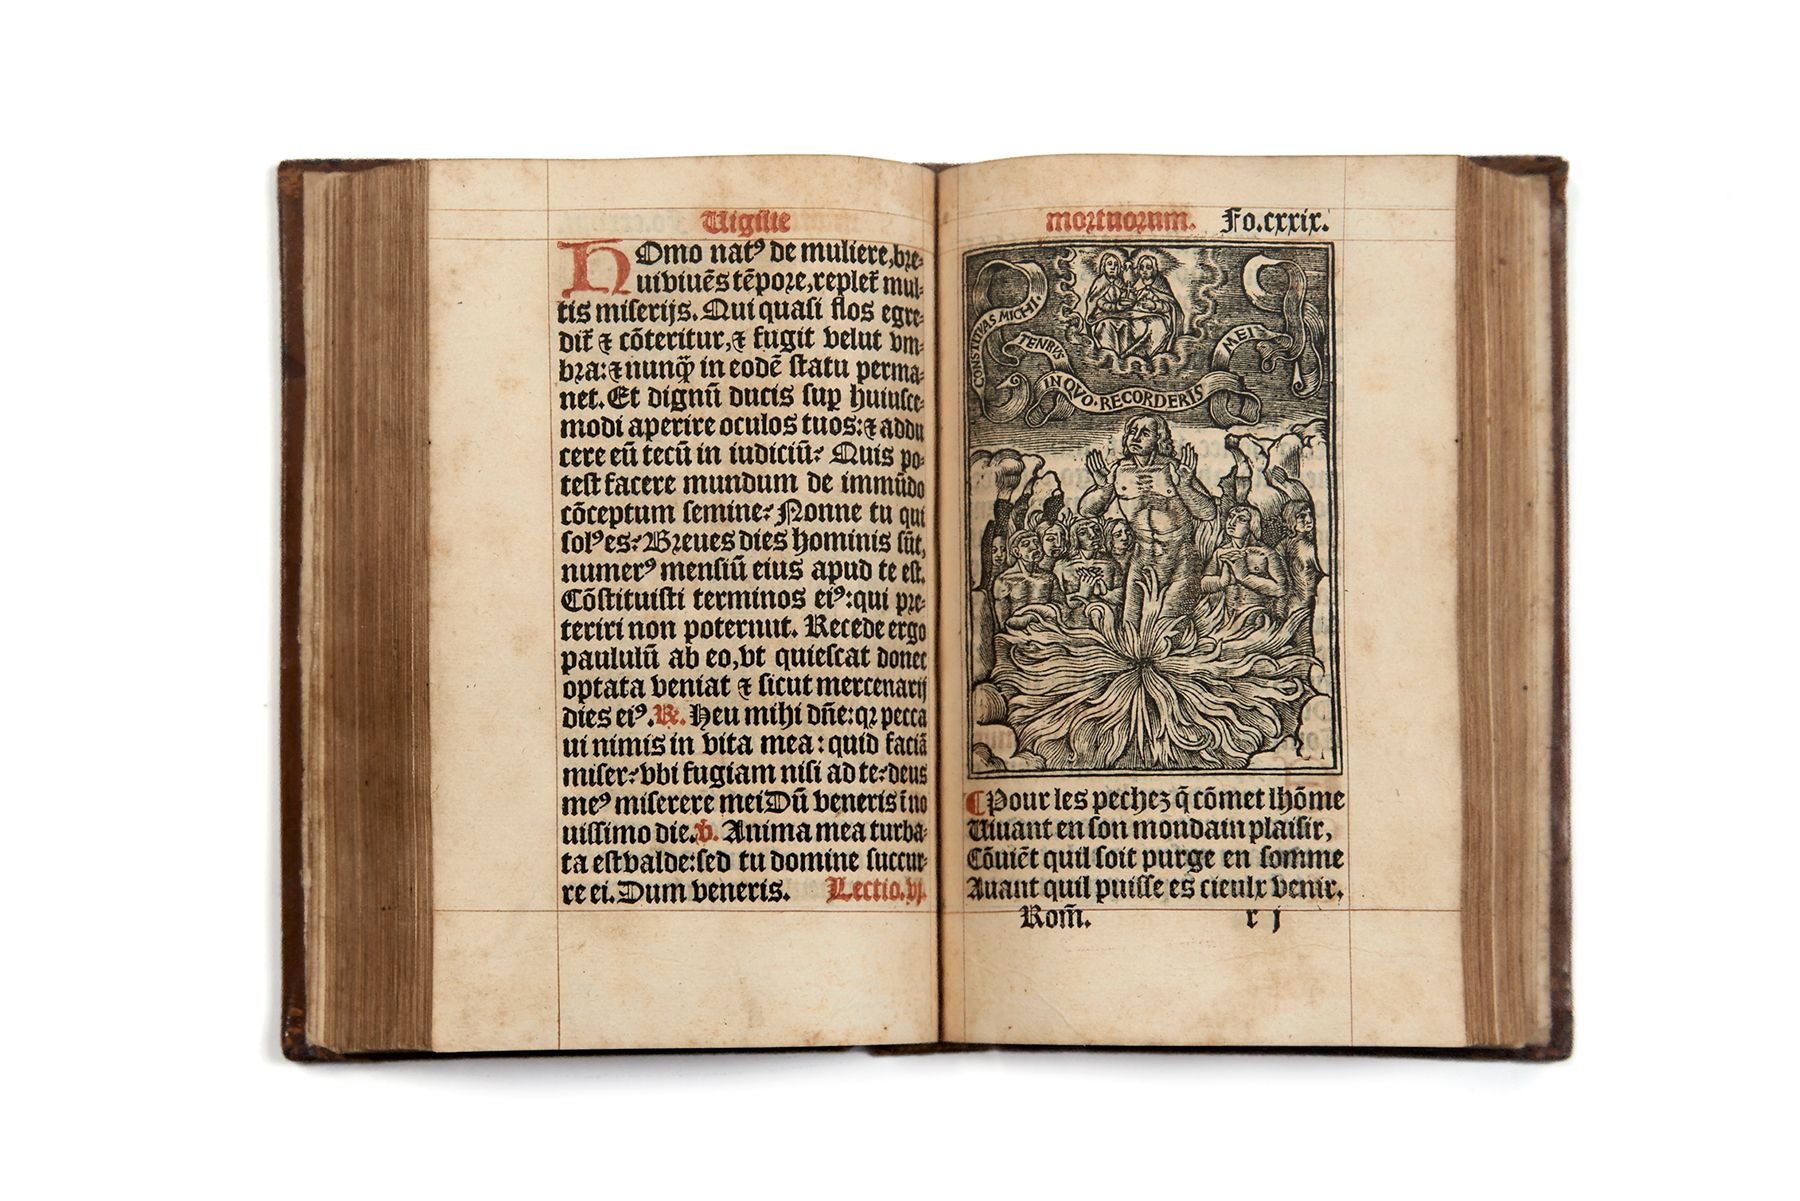 Uigilie
HOmo natꝰ de muliere, bre-
uiviuēs tēpore, replet᷑ mul-
tis miserijs. Qui quasi flos egre-
dit᷑ ⁊ cōteritur, ⁊ fugit velut vm-
bra: ⁊ nunq̄ in eodē statu perma-
net. Et dignū ducis suꝑ huiusce-
modi aperire oculos tuos: ⁊ addu
cere eū tecū in iudiciū? Quis po-
test facere mundum de immūdo
cōceptum semine? Nonne tu qui
solꝰ es? Breues dies hominis sūt,
numerꝰ mensiū eius apud te est.
Cōstituisti terminos eiꝰ: qui pre-
teriri non poternut. Recede ergo
paululū ab eo, vt quiescat donec
optata veniat ⁊ sicut mercenarij
dies eiꝰ. ℟. Heu mihi dñe: qꝛ pecca
ui nimis in vita mea: quid faciā
miser? vbi fugiam nisi ad te? deus
meꝰ miserere mei Dū veneris ī no
uissimo die. ℣. Anima mea turba-
ta est valde: sed tu domine succur-
re ei. Dum veneris. Lectio. vj.
mortuorum. Fo. cxxix.
CONSTITVAS MICHI
TENPVS
IN QVO RECORDERIS
MEI
¶ Pour les pechez q̄ cōmet lhōme
Uiuant en son mondain plaisir,
Cōuiēt quil soit purge en somme
Auant quil puisse es cieulx venir.
Rom̄. r j